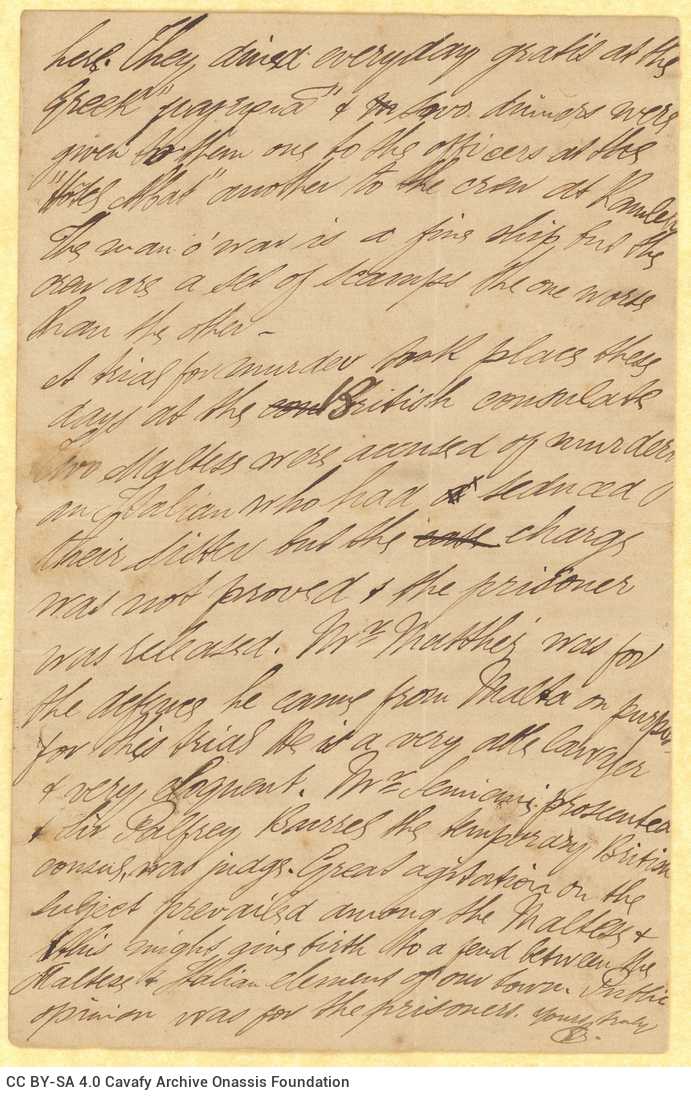 here. They dined everyday gratis at the
Greek "μαγειρεία" & two dinners were
given to them one to the officers at the
"Hotel Abbat" another to the crew at Ramleh
The man o' war is a fine ship, but the
crew are a set of scamps the one worse
than the other –
A trial for murder took place these
days at the British consulate
Two Maltese were accused of murdering
an Italian who had seduced
their sister but the case charge
was not proved & the prisoner
was released. Mr was for
the defence, he came from Malta on purpose
for this trial He is a very able lawyer
& very eloquent. Mr prosecuted
& Sir Palfrey Burrell the temporary British
consul, was judge. Great agitation on the
subject prevailed among the Maltese &
this might give birth to a feud between the
Maltese & Italian element of our town. Public
opinion was for the prisoners. Yours truly
CC BY-SA 4.0 Cavafy Archive Onassis Foundation